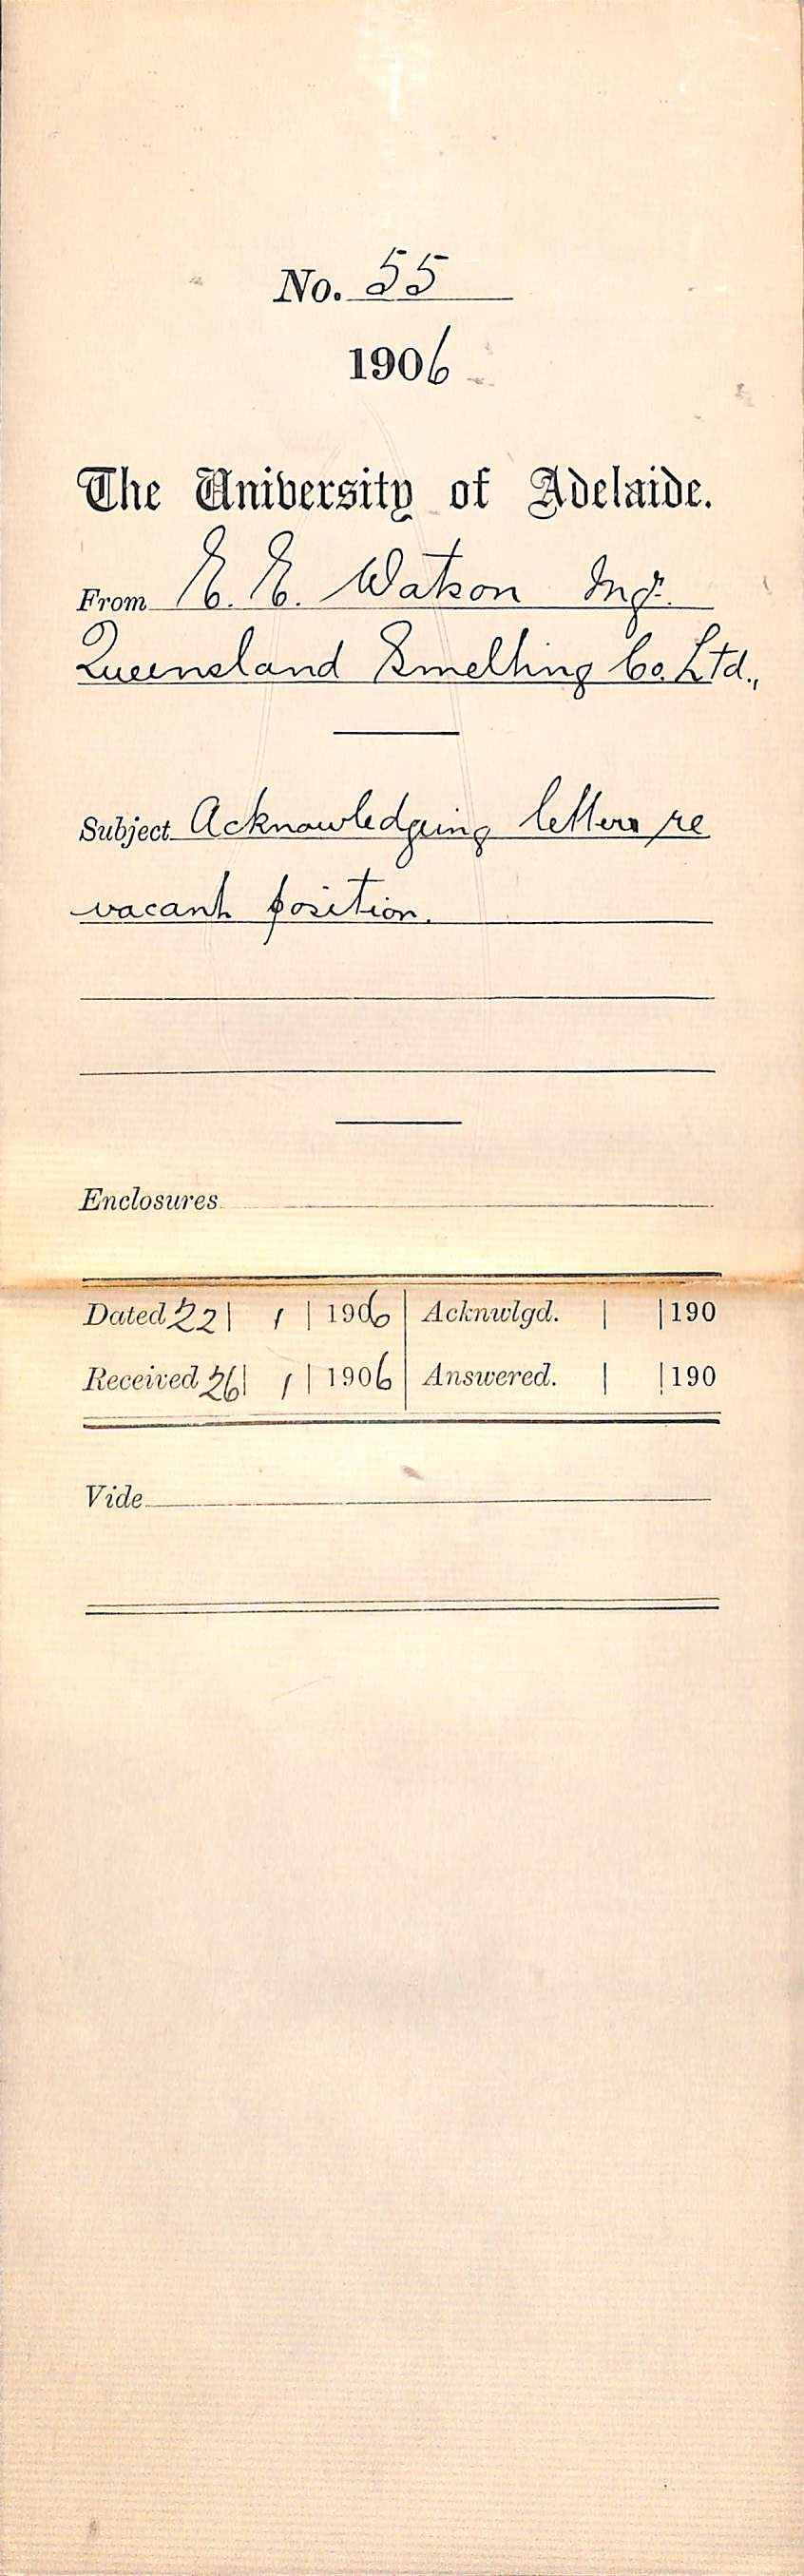 No. 55
1906
The University of Adelaide.
From E. E. Watson Mgr.
Queensland Smelting Co. Ltd.,
Subject Acknowledging letters re
vacant position.
Enclosures
Dated 22 | 1 | 1906 | Acknwlgd. | | 190
Received 26 | 1 | 1906 | Answered. | | 190
Vide